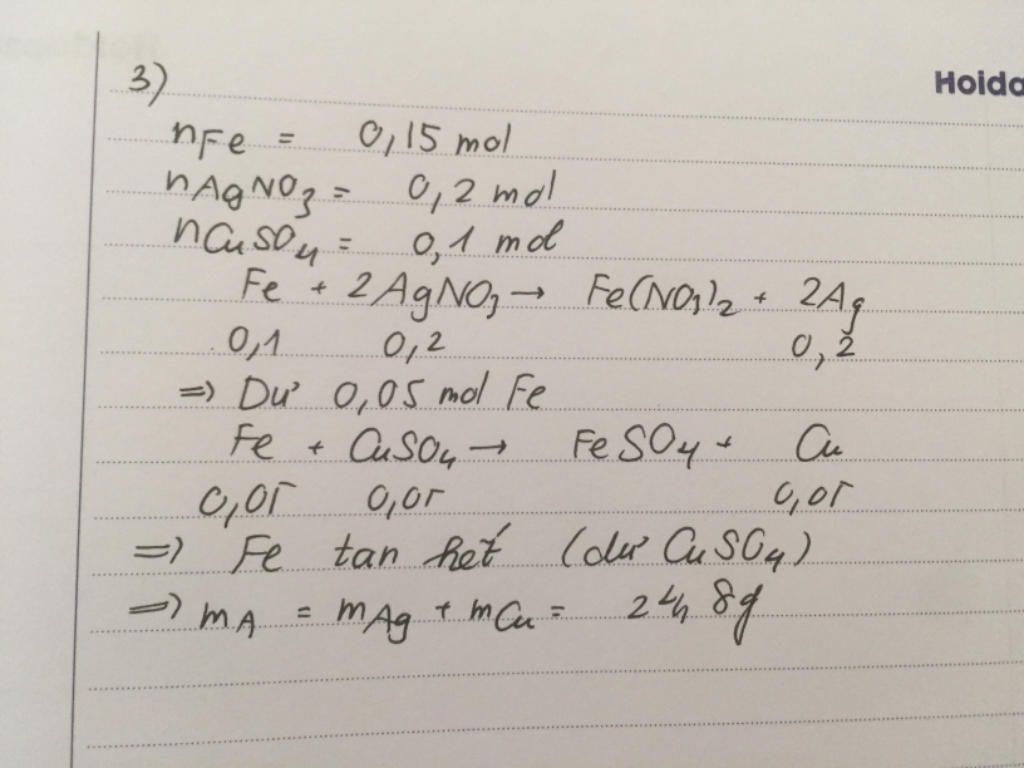 3)
Hoido
nFe = 0,15 mol
nAgNO3 = 0,2 mol
nCuSO4 = 0,1 mol
Fe + 2AgNO3 → Fe(NO3)2 + 2Ag
0,1 0,2 0,2
=> Dư 0,05 mol Fe
Fe + CuSO4 → FeSO4 + Cu
0,05 0,05 0,05
=> Fe tan hết (dư CuSO4)
=> mA = mAg + mCu = 24,8g